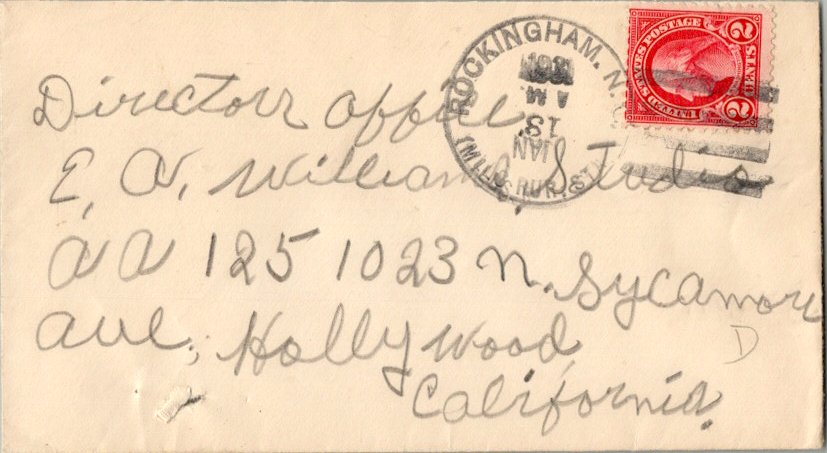 ROCKINGHAM. N.
JAN
13
A M
UNITED STATES POSTAGE
2
2
Director office,
E. A. Williams Studio
AA 125 1023 N. Sycamore
ave, Hollywood
California.
D